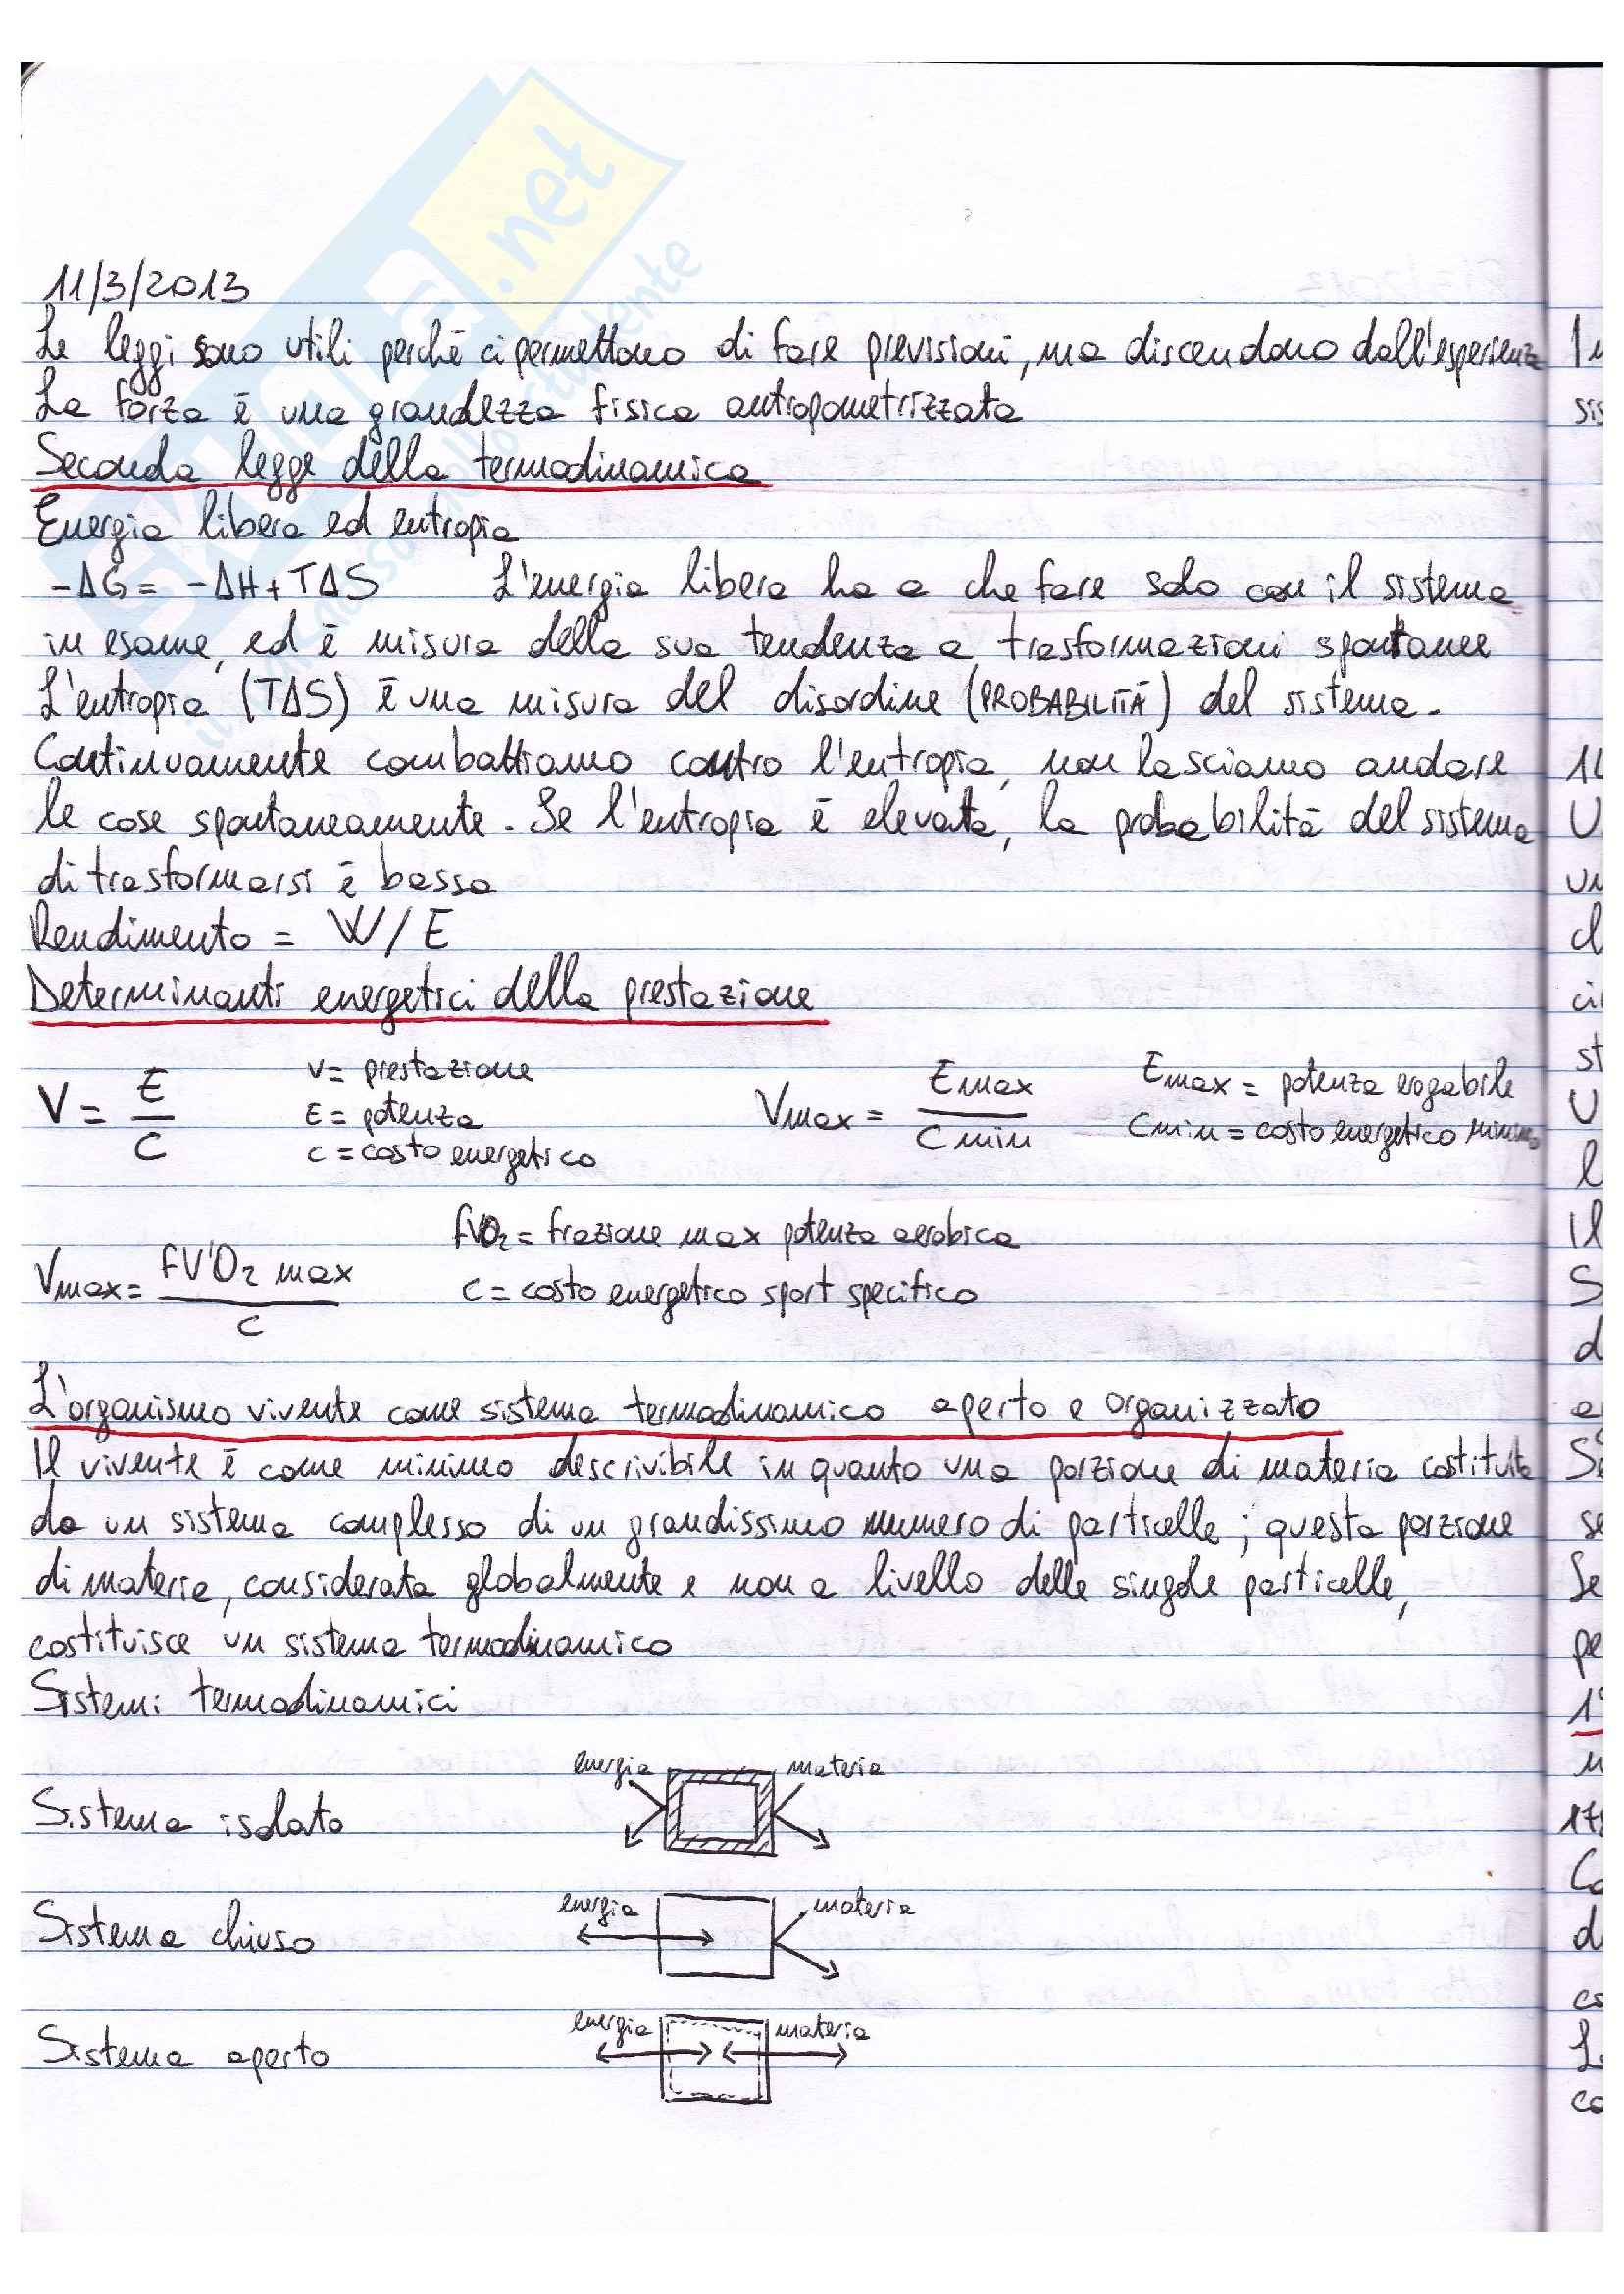 11/3/2013
Le leggi sono utili perchè ci permettono di fare previsioni, ma discendono dall'esperienza
La forza è una grandezza fisica antropometrizzata
Seconda legge della termodinamica
Energia libera ed entropia
-ΔG = -ΔH + TΔS L'energia libera ha a che fare solo con il sistema
in esame, ed è misura della sua tendenza a trasformazioni spontanee
L'entropia (TΔS) è una misura del disordine (PROBABILITÀ) del sistema.
Continuamente combattiamo contro l'entropia, non lasciamo andare
le cose spontaneamente. Se l'entropia è elevata, la probabilità del sistema
di trasformarsi è bassa
Rendimento = W/E
Determinanti energetici della prestazione
V = E/C v = prestazione Vmax = Emax/Cmin Emax = potenza erogabile
E = potenza Cmin = costo energetico minimo
c = costo energetico
fVO₂ = frazione max potenza aerobica
Vmax = fV'O₂ max/C c = costo energetico sport specifico
L'organismo vivente come sistema termodinamico aperto e organizzato
Il vivente è come minimo descrivibile in quanto una porzione di materia costituita
da un sistema complesso di un grandissimo numero di particelle; questa porzione
di materia, considerata globalmente e non a livello delle singole particelle,
costituisce un sistema termodinamico
Sistemi termodinamici
energia materia
Sistema isolato
energia materia
Sistema chiuso
energia materia
Sistema aperto
.net